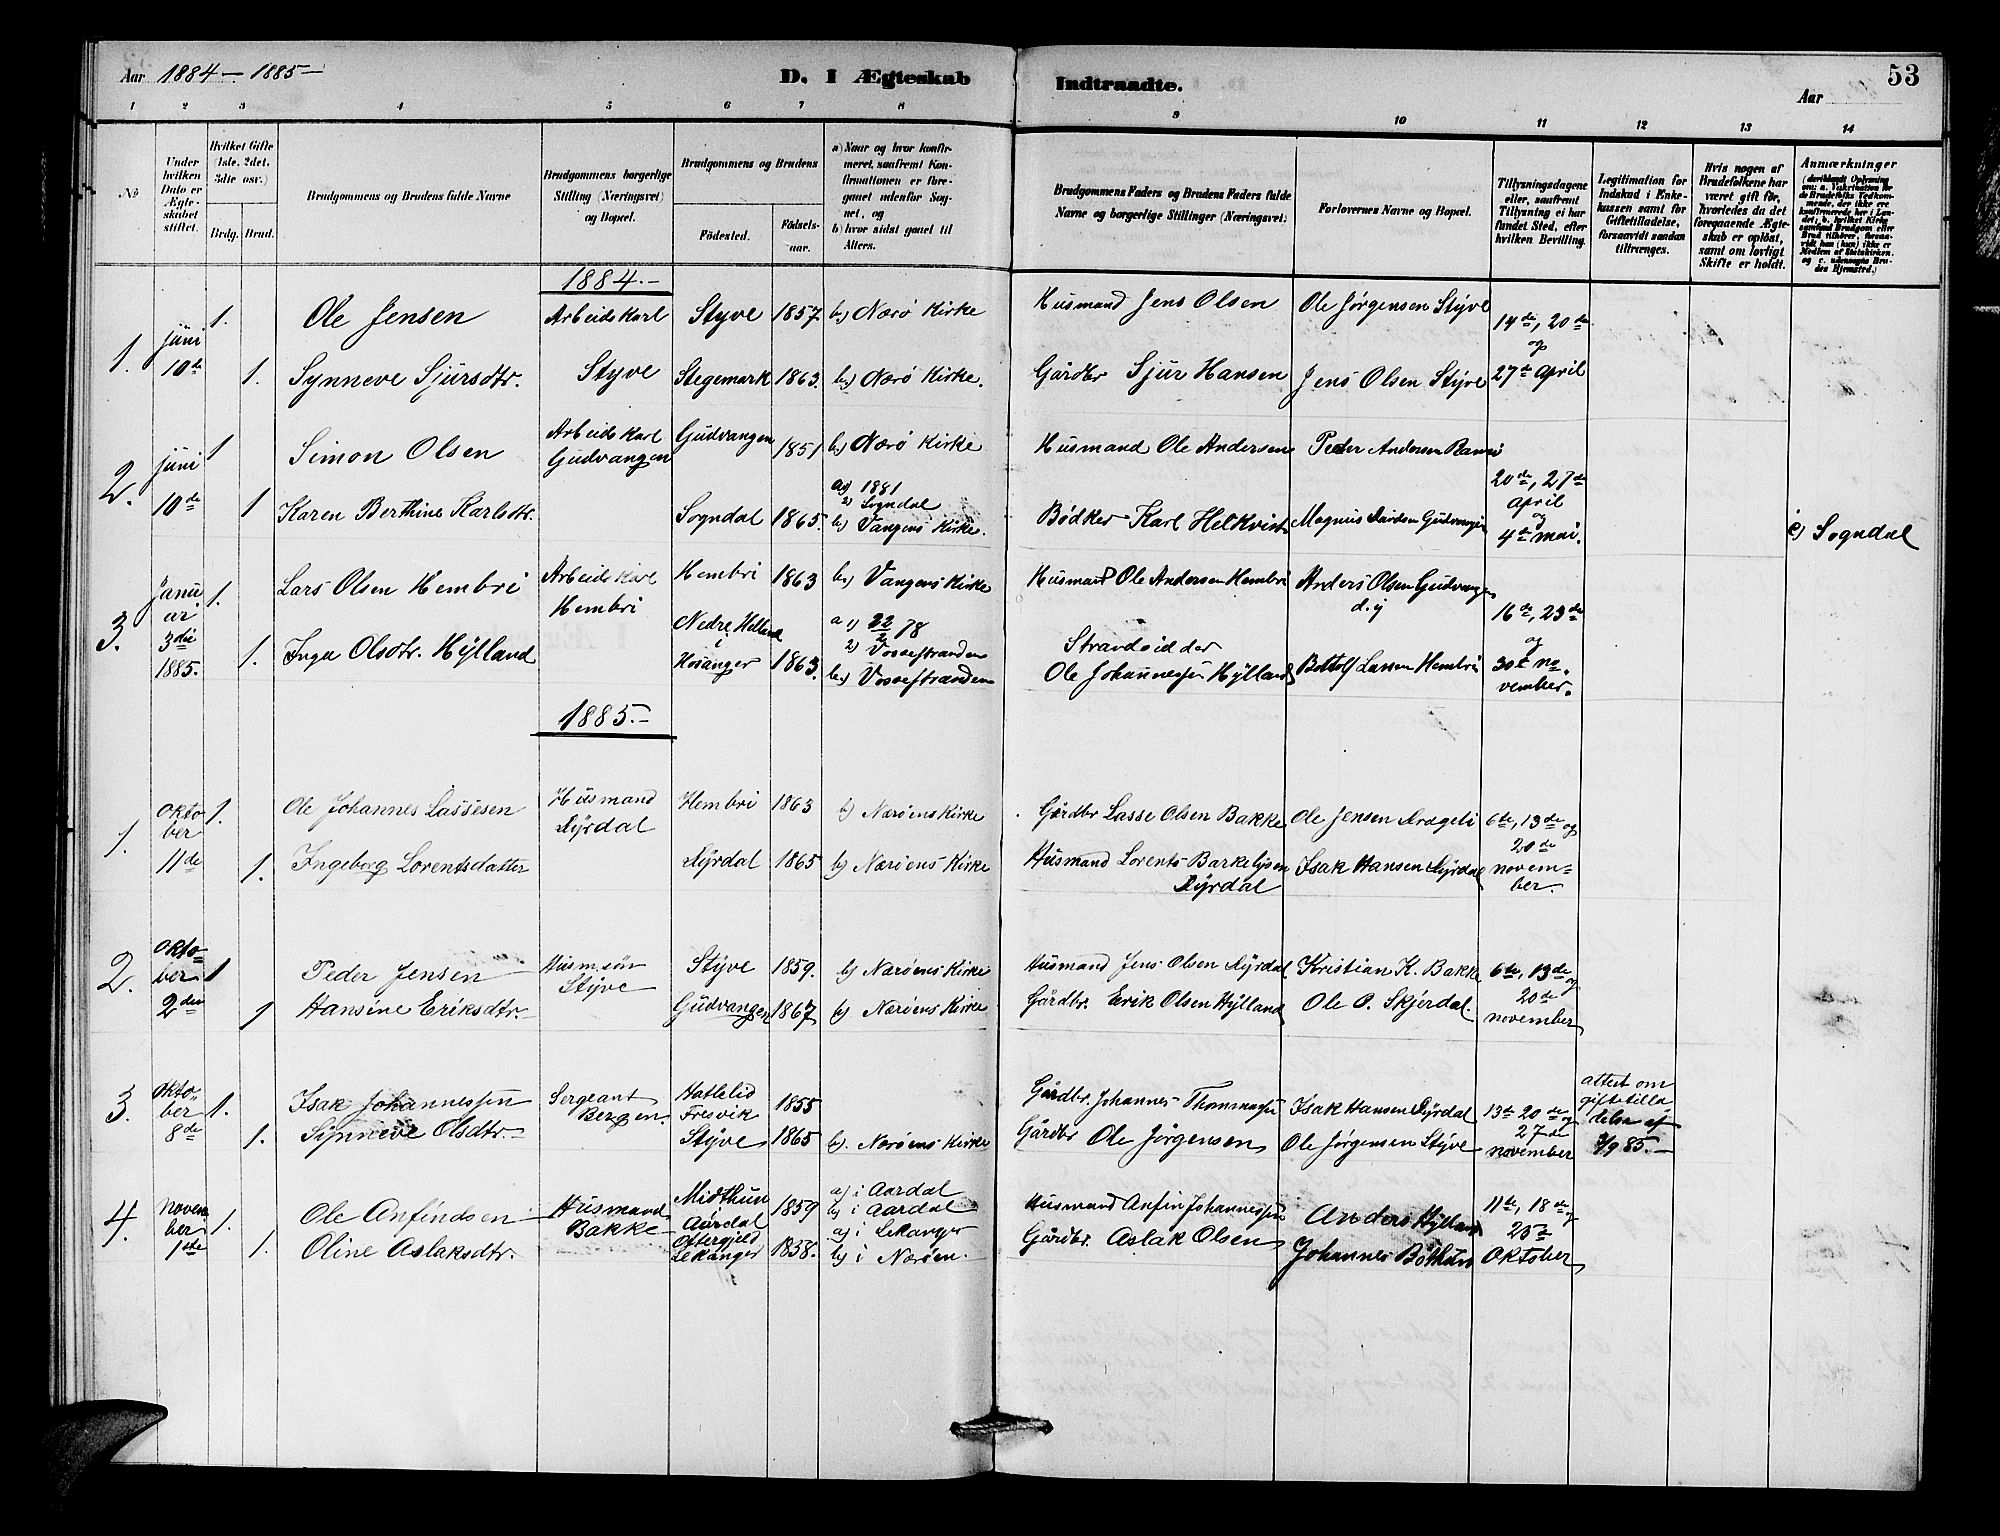 Aar 1884 – 1885 –
D. I Ægteskab
Indtraadte.
Aar
53
1 2 3 4 5 6 7 8 9 10 11 12 13 14
No
Under hvilken Dato er Ægteskabet stiftet.
Hvilket Gifte (1ste, 2det, 3die osv.)
Brdg. Brud.
Brudgommens og Brudens fulde Navne
Brudgommens borgerlige Stilling (Næringsvei) og Bopæl.
Brudgommens og Brudens
Födested.
Födselsaar.
a) Naar og hvor konfirmeret, saafremt Konfirmationen er foregaaet udenfor Sognet, og
b) hvor sidst gaaet til Alters.
Brudgommens Faders og Brudens Faders fulde Navne og borgerlige Stillinger (Næringsvei).
Forlovernes Navne og Bopæl.
Tillysningsdagene eller, saafremt Tillysning ei har fundet Sted, efter hvilken Bevilling.
Legitimation for Indskud i Enkekassen samt for Giftetilladelse, forsaavidt saadan tiltrænges.
Hvis nogen af Brudefolkene har været gift før, hvorledes da det foregaaende Ægteskab er oplöst, samt om lovligt Skifte er holdt.
Anmærkninger
(deriblandt Oplysning om: a. Vakcination for de Brudefolks Vedkommende, der ikke ere konfirmerede her i Landet, b. hvilket Kirkesamfund Brudgom eller Brud tilhører, forsaavidt han (hun) ikke er Medlem af Statskirken, og c. udensogns Brudes Hjemsted.)
1884. –
1. juni 10de
1. Ole Jensen Arbeids Karl Styve 1857. b.) Nærö Kirke Husmand Jens Olsen Ole Jørgensen Styve 14de, 20de og 27de April
1. Synneve Sjursdtr. Styve Stegemark 1863. b.) Nærö Kirke. Gårdbr Sjur Hansen Jens Olsen Styve
2. juni 10de
1 Simon Olsen Arbeids Karl Gudvangen Gudvangen 1851 b.) Nærö Kirke Husmand Ole Andersen Peder Andersen 20de, 27de April og 4de mai.
1 Karen Berthine Karlsdtr. Sogndal 1865. a) 1881 2) Sogndal b.) Vangens Kirke. Bødker Karl Helkvist Magnus Gudvangen c) Sogndal
3. Januar 3die 1885.
1. Lars Olsen Hembri Arbeids Karl Hembri Hembri 1863 b.) Vangens Kirke Husmand Ole Andersen Hembri Anders Olsen Gudvangen d.y 16de, 23de og 30te november.
1. Inga Olsdtr. Hylland Nedre Helland i Hosanger 1863. a 1) 22/2 78 2) Vossestranden b.) Vossestranden Strandsidder Ole Johannessen Hylland Bottolf Lassen Hembri
1885. –
1. Oktober 11de
1. Ole Johannes Lassesen Husmand Dyrdal Hembri 1863 b) Nærøens Kirke Gårdbr Lasse Olsen Bakke Ole Jensen Drægeli 6te, 13de og 20de november.
1. Ingeborg Lorentsdatter Dyrdal 1865 b) Nærøens Kirke Husmand Lorents Dyrdal Isak Hansen Dyrdal
2. Oktober 2den
1 Peder Jensen Husm.søn Styve Styve 1859. b) Nærøens Kirke Husmand Jens Olsen Dyrdal Kristian K. Bakke 6te, 13de og 20de november
1 Hansine Eriksdtr. Gudvangen 1867 b) Nærøens Kirke Gårdbr. Erik Olsen Hylland Ole P. Skjerdal.
3. Oktober 8de
1. Isak Johannessen Sergeant Bergen. Hatlelid Fresvik 1855 Gårdbr. Johannes Thomassen Isak Hansen Dyrdal 13de 20de og 27de november attest om giftetilladelse af 3/9 85. –
1. Synneve Olsdtr. Styve 1865 b). Nærøens Kirke Gårdbr Ole Jørgensen Ole Jørgensen Styve
4. November 1ste
1. Ole Anfindsen Husmand Bakke Midthun Aardal 1859 a) i Aardal b) i Aardal Husmand Anfin Johannessen Anders Hylland 11te, 18de og 25de Oktober
1. Oline Aslaksdtr. Ottergjeld Lekanger 1858. a) i Lekanger b) i Nærøen. Gårdbr. Aslak Olsen Johannes Bothun